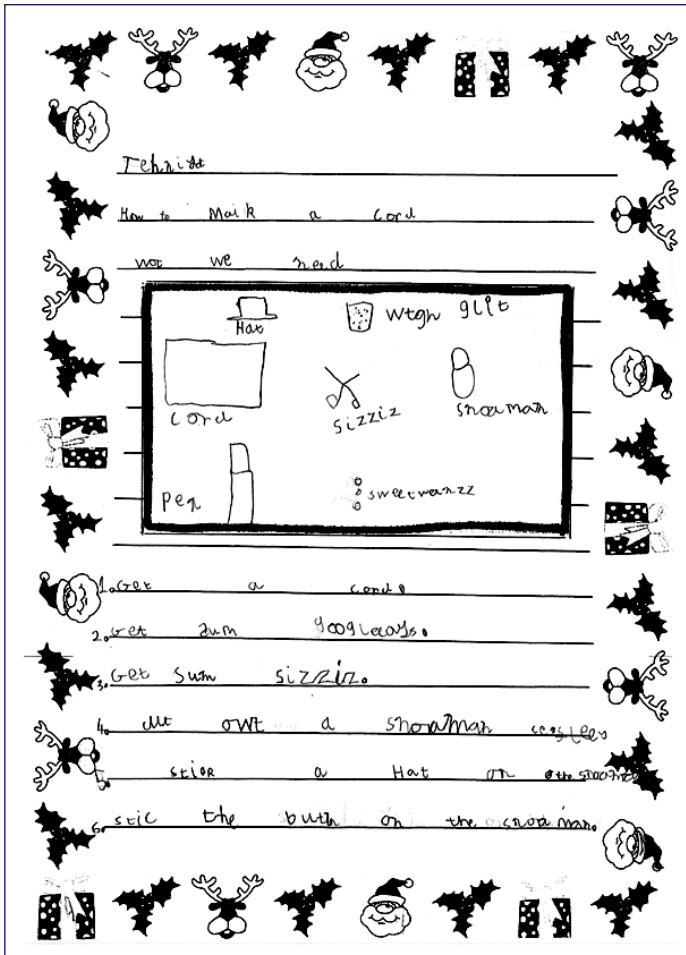 How to Maik a cord
wot we need
Hat
wtgh glit
cord
sizziz
snoaman
pen
sweetwanzz
1. Get a cord.
2. Get sum googleays.
3. Get sum sizziz.
4. owt a snoaman
a Hat on the
6. stic the buth on the snoaman.